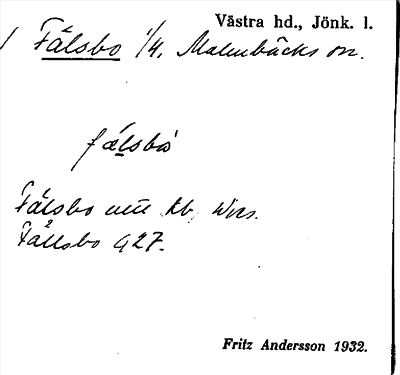 Västra hd., Jönk. l.
/ Fålsbo 1/4. Malmbäcks sn.
fålsbo
Fålsbo utt. kb.
Fållsbo 927.
Fritz Andersson 1932.